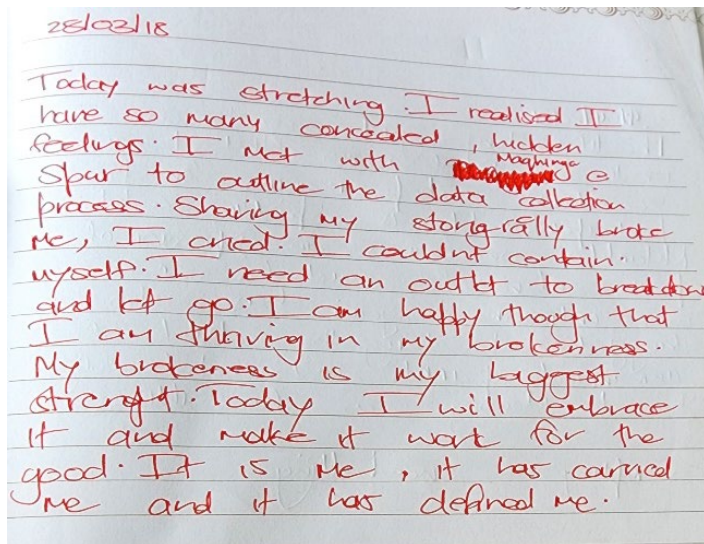 28/03/18
Today was stretching. I realised I
have so many concealed, hidden
feelings. I met with Maqhinga @
Spur to outline the data collection
process. Sharing my story really broke
me, I cried. I couldnt contain.
myself. I need an outlet to breakdown
and let go. I am happy though that
I am thriving in my brokenness.
My brokeness is my biggest
strenght. Today I will embrace
it and make it work for the
good. It is me, it has carried
me and it has defined me.